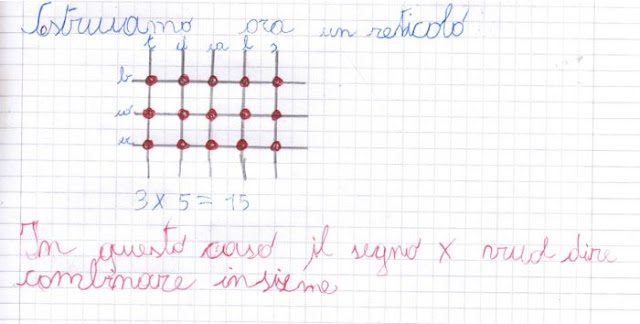 Costruiamo ora un reticolo
b
3 x 5 = 15
In questo caso il segno x vuol dire
combinare insieme